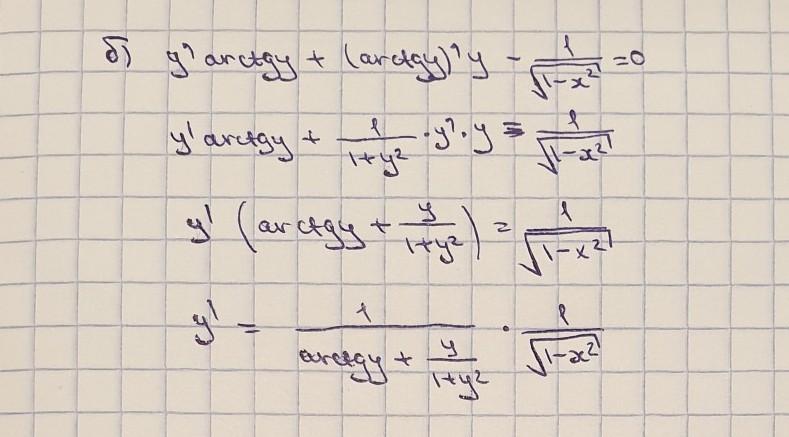 б) y' arctgy + (arctgy)' y - 1/√(1-x²) = 0
y' arctgy + 1/(1+y²) · y' · y = 1/√(1-x²)
y' (arctgy + y/(1+y²)) = 1/√(1-x²)
y' = 1/(arctgy + y/(1+y²)) · 1/√(1-x²)